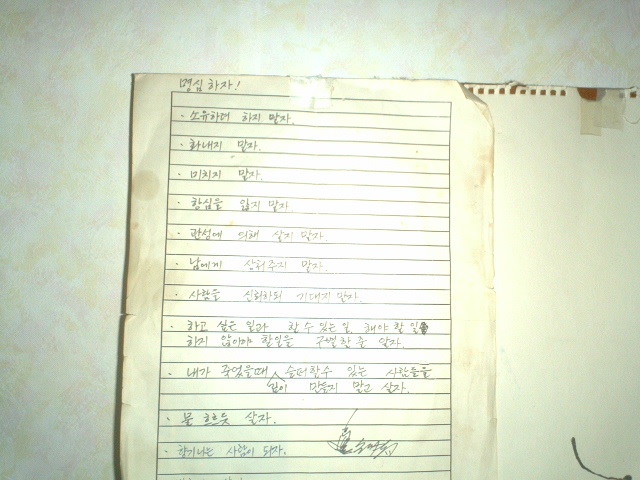 명심하자!
· 소유하려 하지 말자.
· 화내지 말자.
· 미치지 말자.
· 항심을 잃지 말자.
· 관성에 의해 살지 말자.
· 남에게 상처주지 말자.
· 사람을 신뢰하되 기대지 말자.
· 하고 싶은 일과 할 수 있는 일, 해야 할 일
하지 않아야 할일을 구별할 줄 알자.
· 내가 죽었을때 슬퍼할수 있는 사람들을
많이 만들지 말고 살자.
· 물 흐르듯 살자.
· 향기나는 사람이 되자.